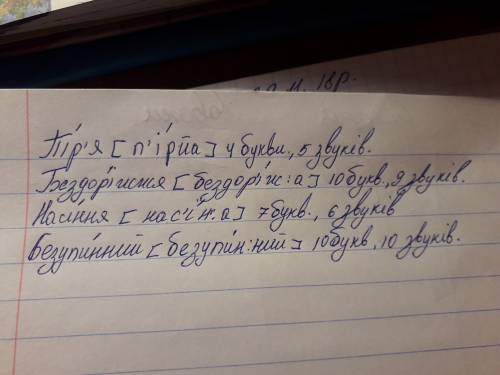 м. Івр.
Пі́р'я [п'і́рйа] 4 букви., 5 звуків.
Бездорі́жжя [бездор'і́ж:а] 10 букв., 9 звуків.
Насіння [нас'і́н:а] 7 букв., 6 звуків
Безупи́нний [безупи́н:ний] 10 букв, 10 звуків.